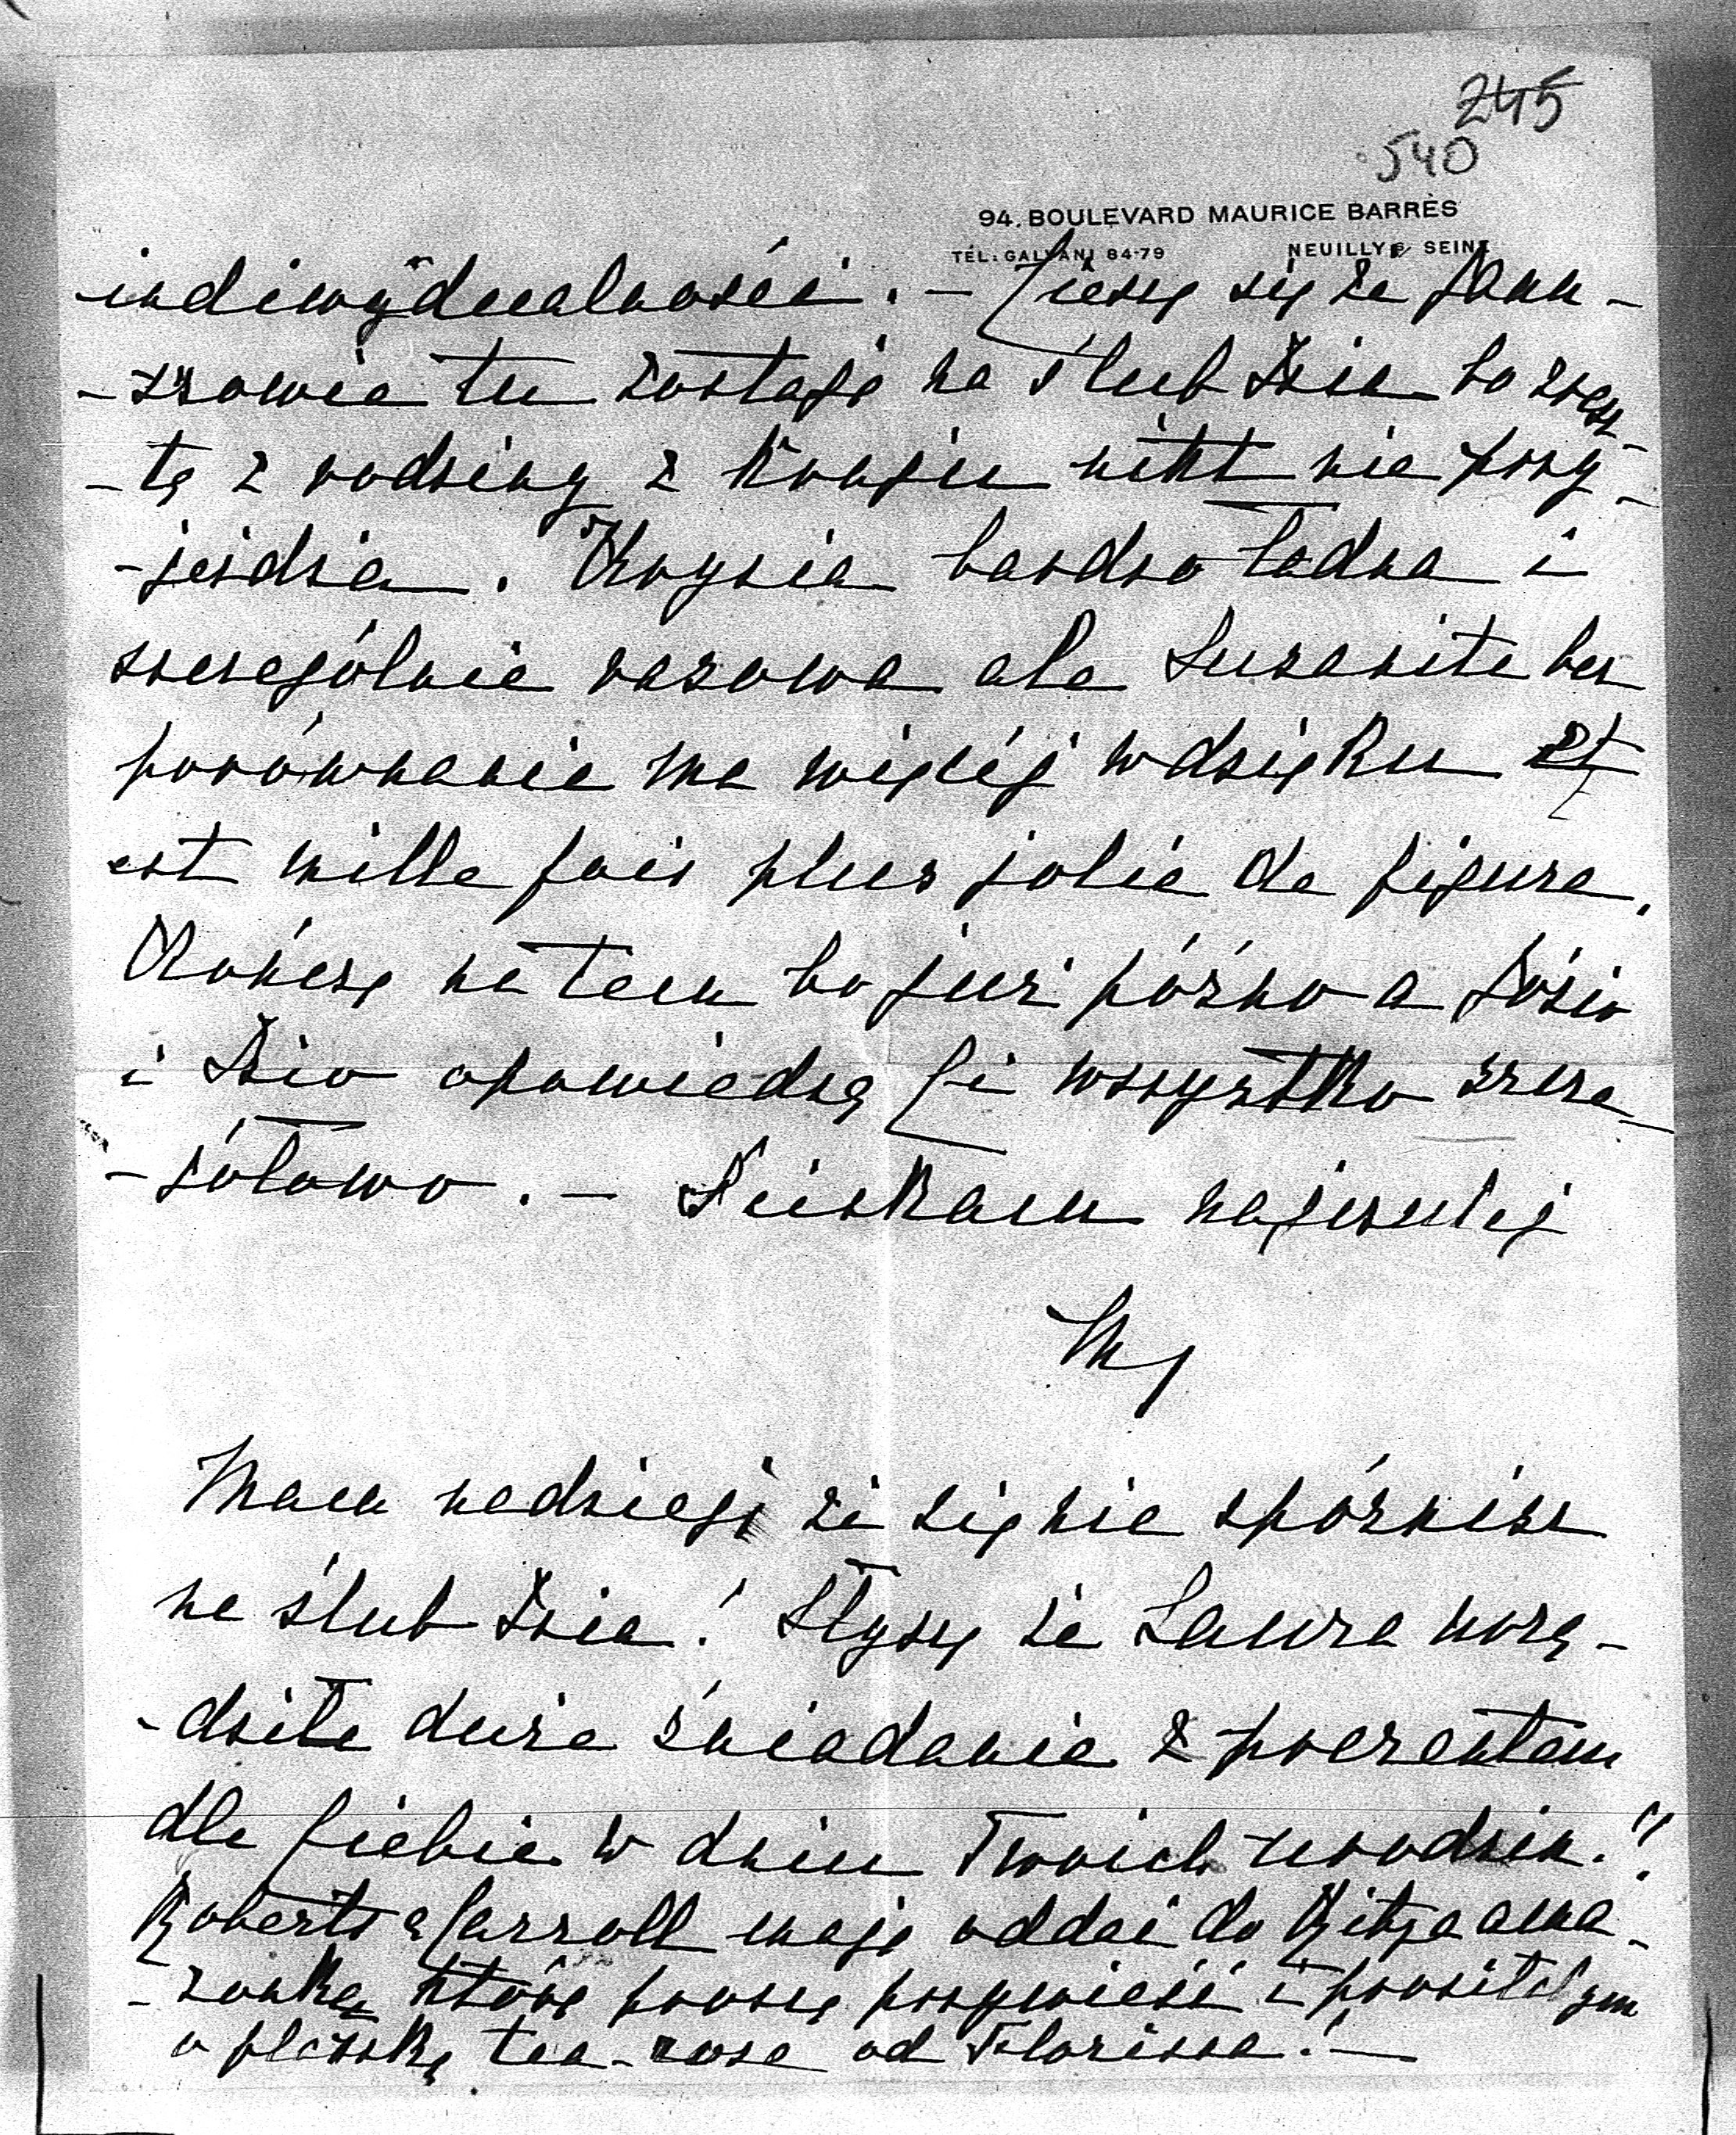 245
540
94. BOULEVARD MAURICE BARRÈS
TÉL: GALVANI 84-79 NEUILLY S/ SEINE
indiwydualności. — Cieszę się że Janu-
-szowie tu zostają na ślub Isia bo zresz-
-tą z rodziny z kraju nikt nie przy-
-jeżdża. Krysia bardzo ładna i
szczególnie rasowa ale Suzanite bez
porównania ma więcej wdzięku et
est mille fois plus jolie de figure.
Kończę na tem bo już późno a Józio
i Isio opowiedzą Ci wszystko szcze-
-gółowo. — Ściskam najczulej
My
Mam nadzieję że się nie spóźnisz
na ślub Isia! Słyszę że Laura urzą-
-dziła duże śniadanie z poczęstem
dla Ciebie w dniu Twoich urodzin!?
Roberts & Carroll mają oddać do Ritza ama-
-zonkę którą proszę przywieźć i prosiłabym
o flaszkę tea-rose od Florissa. —